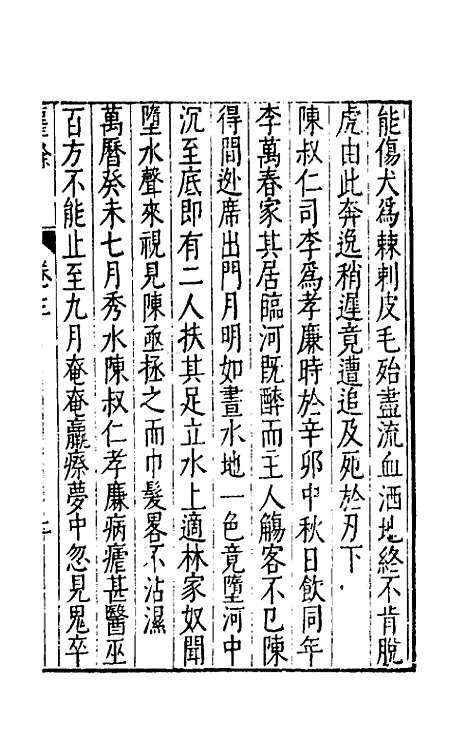 能傷犬爲棘刺皮毛殆盡流血洒地終不肯脫
虎由此奔逸稍遲竟遭追及死於刃下
陳叔仁司李爲孝廉時於辛卯中秋日飲同年
李萬春家其居臨河旣醉而主人觴客不已陳
得間迯席出門月明如晝水地一色竟墮河中
沉至底即有二人扶其足立水上適林家奴聞
墮水聲來視見陳亟拯之而巾髮畧不沾濕
萬曆癸未七月秀水陳叔仁孝廉病瘧甚醫巫
百方不能止至九月奄奄羸瘵夢中忽見鬼卒
卷三